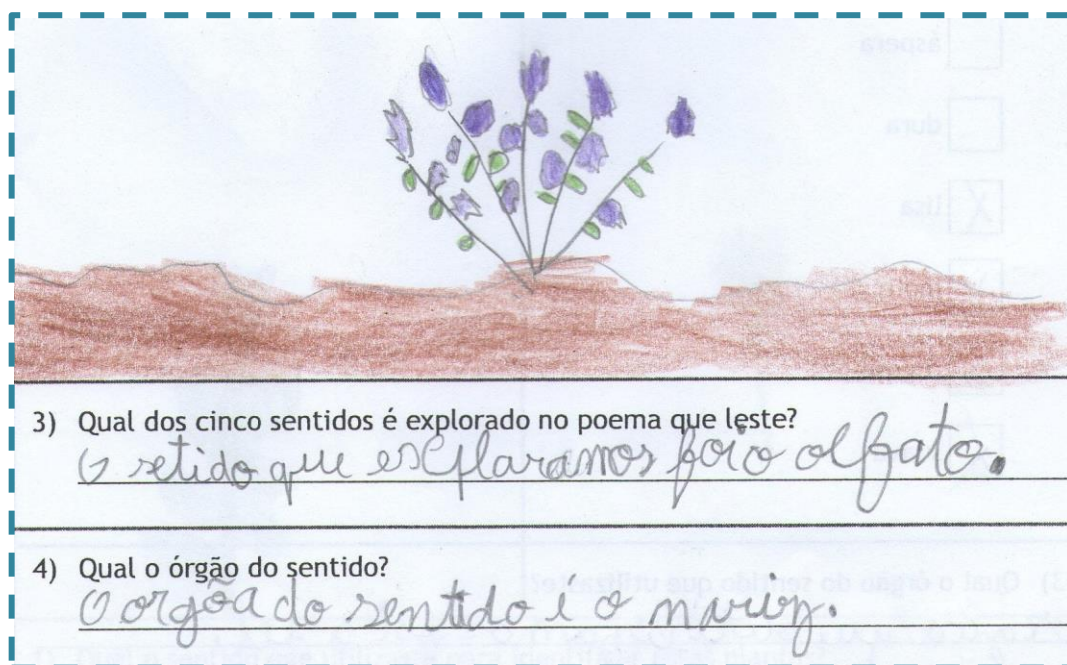 3) Qual dos cinco sentidos é explorado no poema que leste?
O setido que esxplaramos foi o olfato.
4) Qual o órgão do sentido?
O orgõa do sentido é o nariz.